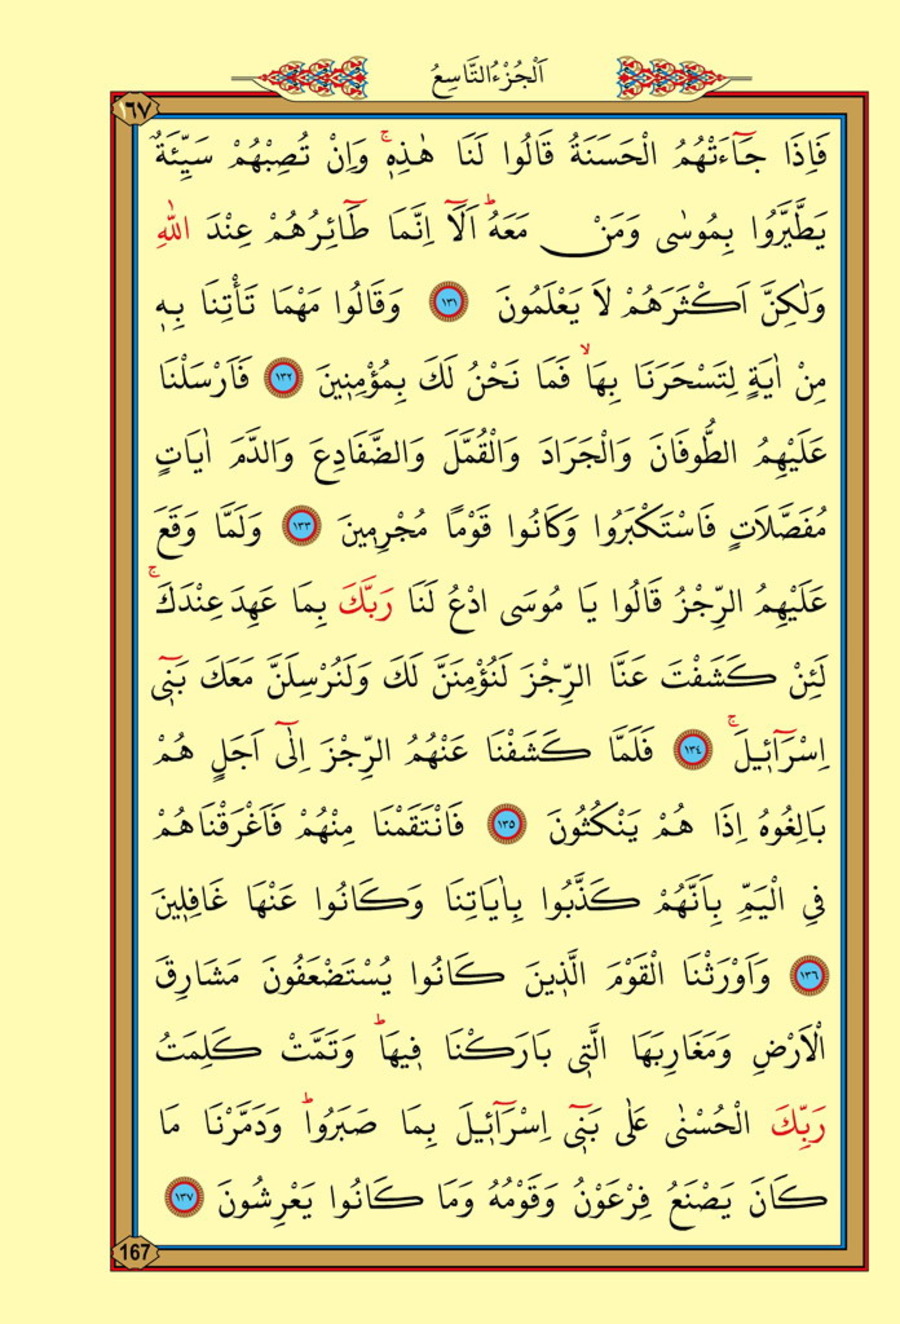 اَلْجُزْءُ التَّاسِعُ
١٦٧
فَاِذَا جَٓاءَتْهُمُ الْحَسَنَةُ قَالُوا لَنَا هٰذِه۪ۚ وَاِنْ تُصِبْهُمْ سَيِّئَةٌ
يَطَّيَّرُوا بِمُوسٰى وَمَنْ مَعَهُۜ اَلَٓا اِنَّمَا طَٓائِرُهُمْ عِنْدَ اللّٰهِ
وَلٰكِنَّ اَكْثَرَهُمْ لَا يَعْلَمُونَ ١٣١ وَقَالُوا مَهْمَا تَأْتِنَا بِه۪
مِنْ اٰيَةٍ لِتَسْحَرَنَا بِهَاۙ فَمَا نَحْنُ لَكَ بِمُؤْمِن۪ينَ ١٣٢ فَاَرْسَلْنَا
عَلَيْهِمُ الطُّوفَانَ وَالْجَرَادَ وَالْقُمَّلَ وَالضَّفَادِعَ وَالدَّمَ اٰيَاتٍ
مُفَصَّلَاتٍ فَاسْتَكْبَرُوا وَكَانُوا قَوْمًا مُجْرِم۪ينَ ١٣٣ وَلَمَّا وَقَعَ
عَلَيْهِمُ الرِّجْزُ قَالُوا يَا مُوسَى ادْعُ لَنَا رَبَّكَ بِمَا عَهِدَ عِنْدَكَۚ
لَئِنْ كَشَفْتَ عَنَّا الرِّجْزَ لَنُؤْمِنَنَّ لَكَ وَلَنُرْسِلَنَّ مَعَكَ بَن۪ٓي
اِسْرَٓائ۪يلَۚ ١٣٤ فَلَمَّا كَشَفْنَا عَنْهُمُ الرِّجْزَ اِلٰٓى اَجَلٍ هُمْ
بَالِغُوهُ اِذَا هُمْ يَنْكُثُونَ ١٣٥ فَانْتَقَمْنَا مِنْهُمْ فَاَغْرَقْنَاهُمْ
فِي الْيَمِّ بِاَنَّهُمْ كَذَّبُوا بِاٰيَاتِنَا وَكَانُوا عَنْهَا غَافِل۪ينَ
١٣٦ وَاَوْرَثْنَا الْقَوْمَ الَّذ۪ينَ كَانُوا يُسْتَضْعَفُونَ مَشَارِقَ
الْاَرْضِ وَمَغَارِبَهَا الَّت۪ي بَارَكْنَا ف۪يهَاۜ وَتَمَّتْ كَلِمَتُ
رَبِّكَ الْحُسْنٰى عَلٰى بَن۪ٓي اِسْرَٓائ۪يلَ بِمَا صَبَرُواۜ وَدَمَّرْنَا مَا
كَانَ يَصْنَعُ فِرْعَوْنُ وَقَوْمُهُ وَمَا كَانُوا يَعْرِشُونَ ١٣٧
167